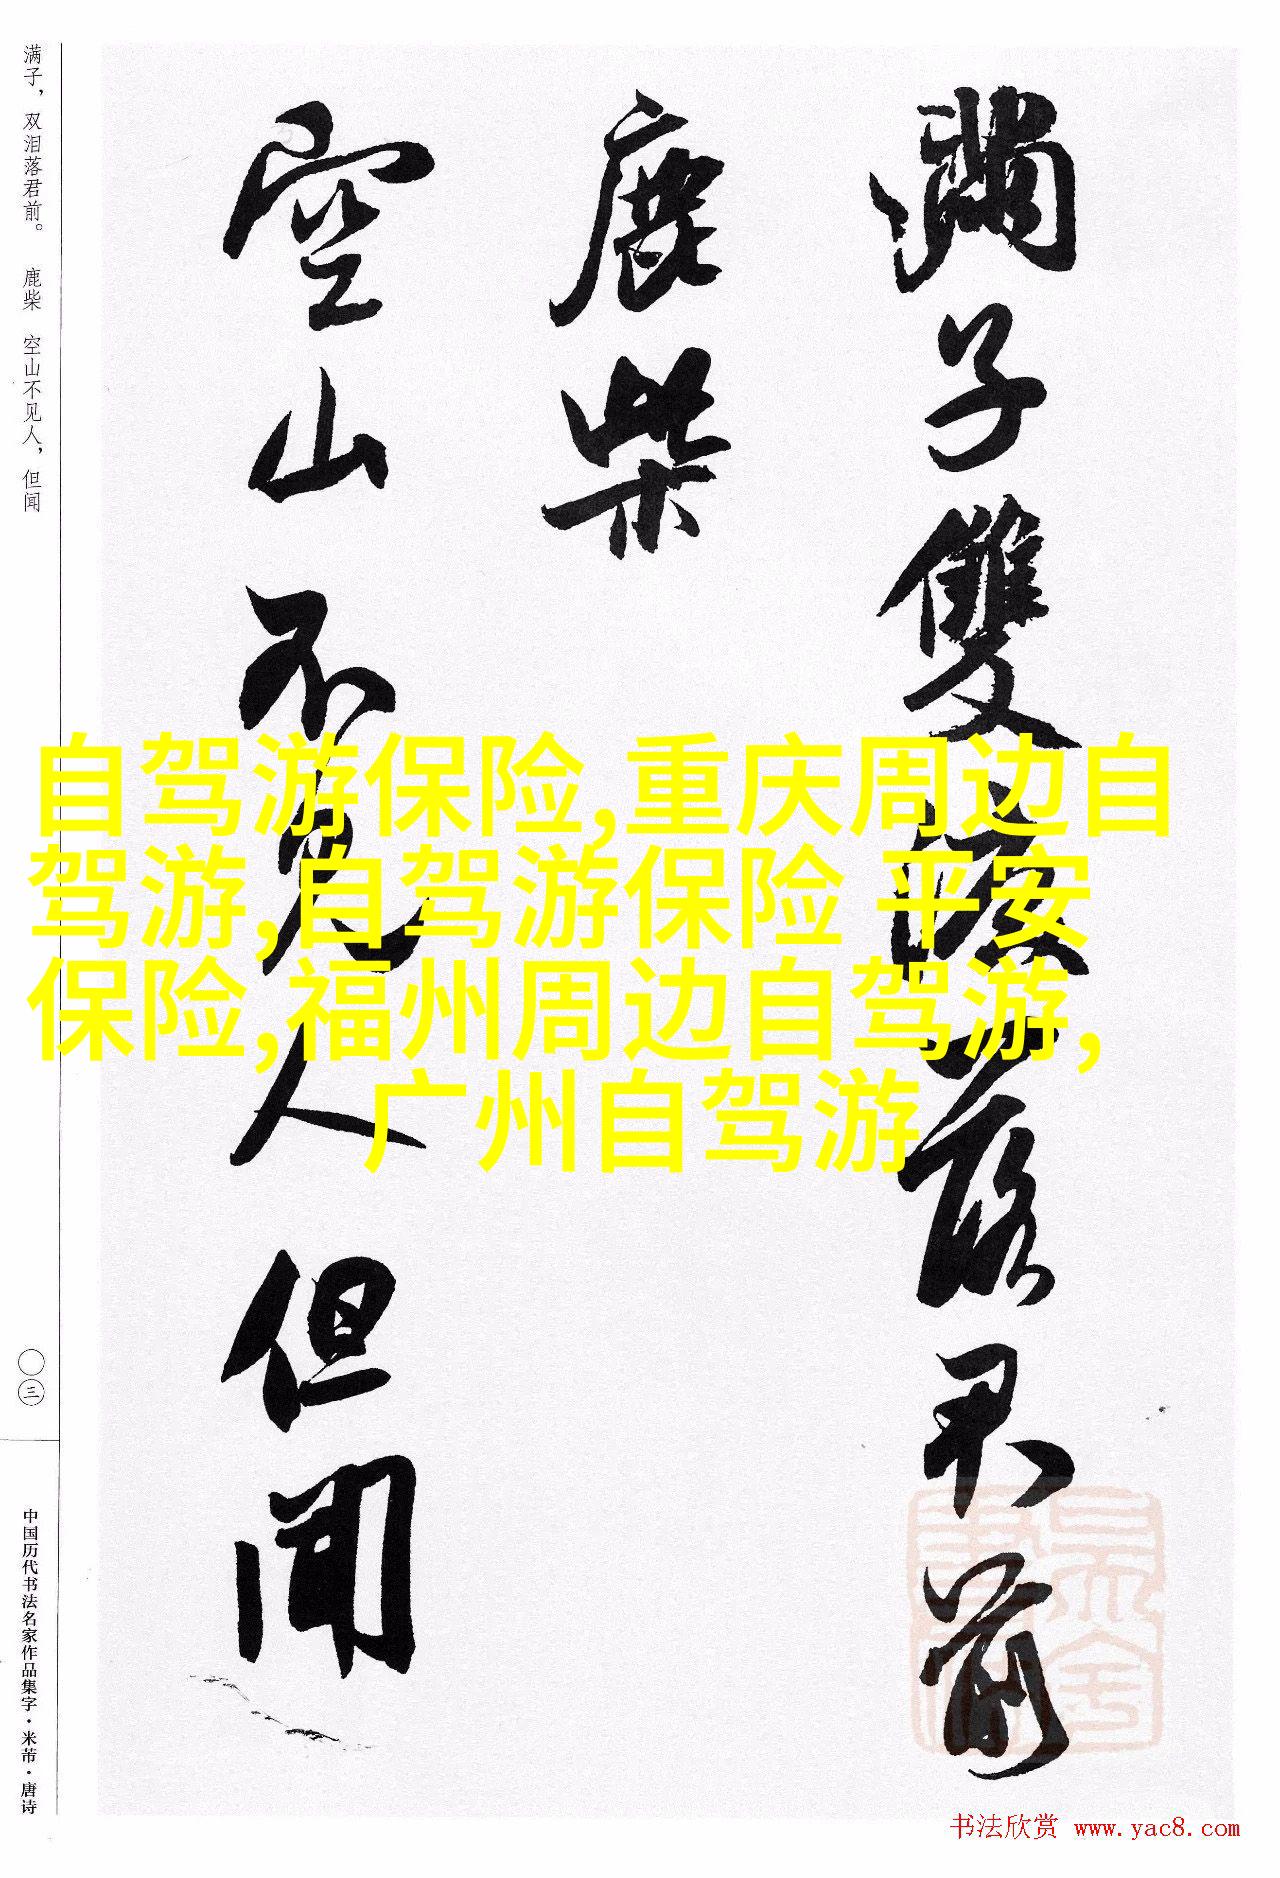 满子，双泪落君前。 鹿柴 空山不见人，但闻
滿子雙淚落君前
鹿柴
空山不見人但聞
自驾游保险,重庆周边自
驾游,自驾游保险 平安
保险,福州周边自驾游,
广州自驾游
〇三
中国历代书法名家作品集字·米芾·唐诗
书法欣赏 www.yac8.com